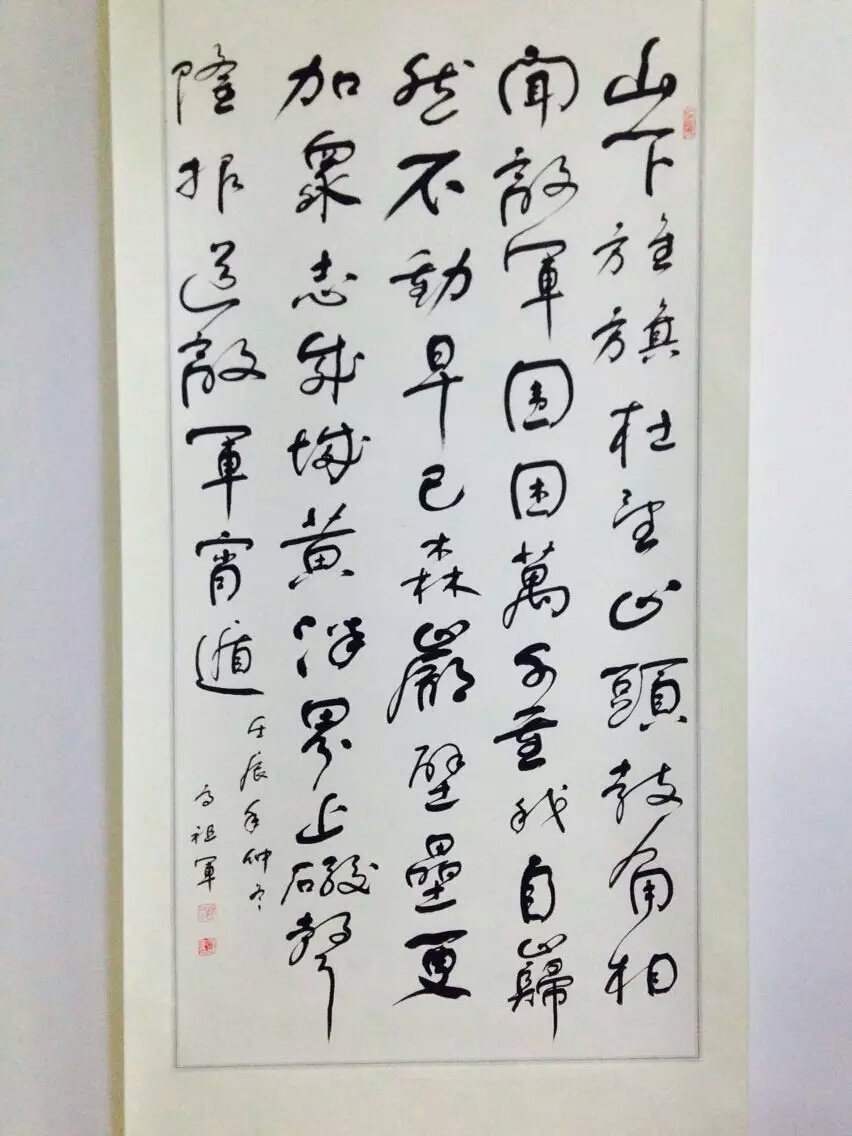 山下旌旗在望山頭鼓角相
聞敵軍圍困萬千重我自巋
然不動早已森嚴壁壘更
加眾志成城黃洋界上礮聲
隆报道敵軍宵遁
壬辰年仲冬
祖軍